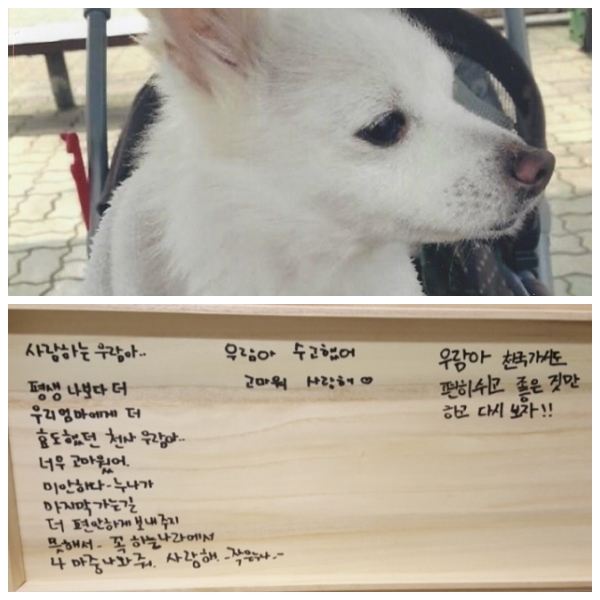 사랑하는 우람아..
평생 나보다 더
우리엄마에게 더
효도했던 천사 우람아..
너무 고마웠어.
미안하다-누나가
마지막가는길
더 편안하게보내주지
못해서- 꼭 하늘나라에서
나 마중나와줘. 사랑해. -작은누나-
우람아 수고했어
고마워 사랑해♡
우람아 천국가서도
편히쉬고 좋은 것만
하고 다시 보자!!